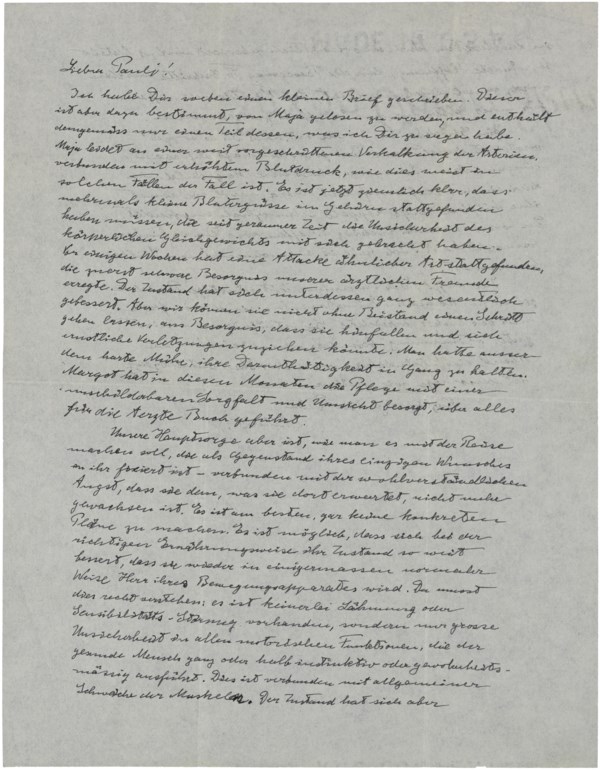 Lieber Pauli!
Ich habe Dir soeben einen kleinen Brief geschrieben. Dieser
ist aber dazu bestimmt, von Maja gelesen zu werden, und enthält
demgemäss nur einen Teil dessen, was ich Dir zu sagen habe.
Maja leidet an einer weit vorgeschrittenen Verkalkung der Arterien,
verbunden mit erhöhtem Blutdruck, wie dies meist in
solchen Fällen der Fall ist. Es ist jetzt ziemlich klar, dass
mehrmals kleine Blutergüsse im Gehirn stattgefunden
haben müssen, die seit geraumer Zeit die Unsicherheit des
körperlichen Gleichgewichts mit sich gebracht haben.
Vor einigen Wochen hat eine Attacke ähnlicher Art stattgefunden,
die zuerst schwere Besorgnis unserer ärztlichen Freunde
erregte. Der Zustand hat sich unterdessen ganz wesentlich
gebessert. Aber wir können sie nicht ohne Beistand einen Schritt
gehen lassen, aus Besorgnis, dass sie hinfallen und sich
ernstliche Verletzungen zuziehen könnte. Man hatte ausser-
dem harte Mühe, ihre Darmthätigkeit in Gang zu halten.
Margot hat in diesen Monaten die Pflege mit einer
unschilderbaren Sorgfalt und Umsicht besorgt, über alles
für die Aerzte Buch geführt.
Unsere Hauptsorge aber ist, wie man es mit der Reise
machen soll, die als Gegenstand ihres einzigen Wunsches
in ihr fixiert ist – verbunden mit der wohlverständlichen
Angst, dass sie dem, was sie dort erwartet, nicht mehr
gewachsen ist. Es ist am besten, gar keine konkreten
Pläne zu machen. Es ist möglich, dass sich bei der
richtigen Ernährungsweise ihr Zustand so weit
bessert, dass sie wieder in einigermassen normaler
Weise Herr ihres Bewegungsapparates wird. Du musst
dies recht verstehen: es ist keinerlei Lähmung oder
Sensibilitäts-Störung vorhanden, sondern nur grosse
Unsicherheit in allen motorischen Funktionen, die der
gesunde Mensch ganz oder halb instinktiv oder gewohnheits-
mässig ausführt. Dies ist verbunden mit allgemeiner
Schwäche der Muskeln. Der Zustand hat sich aber